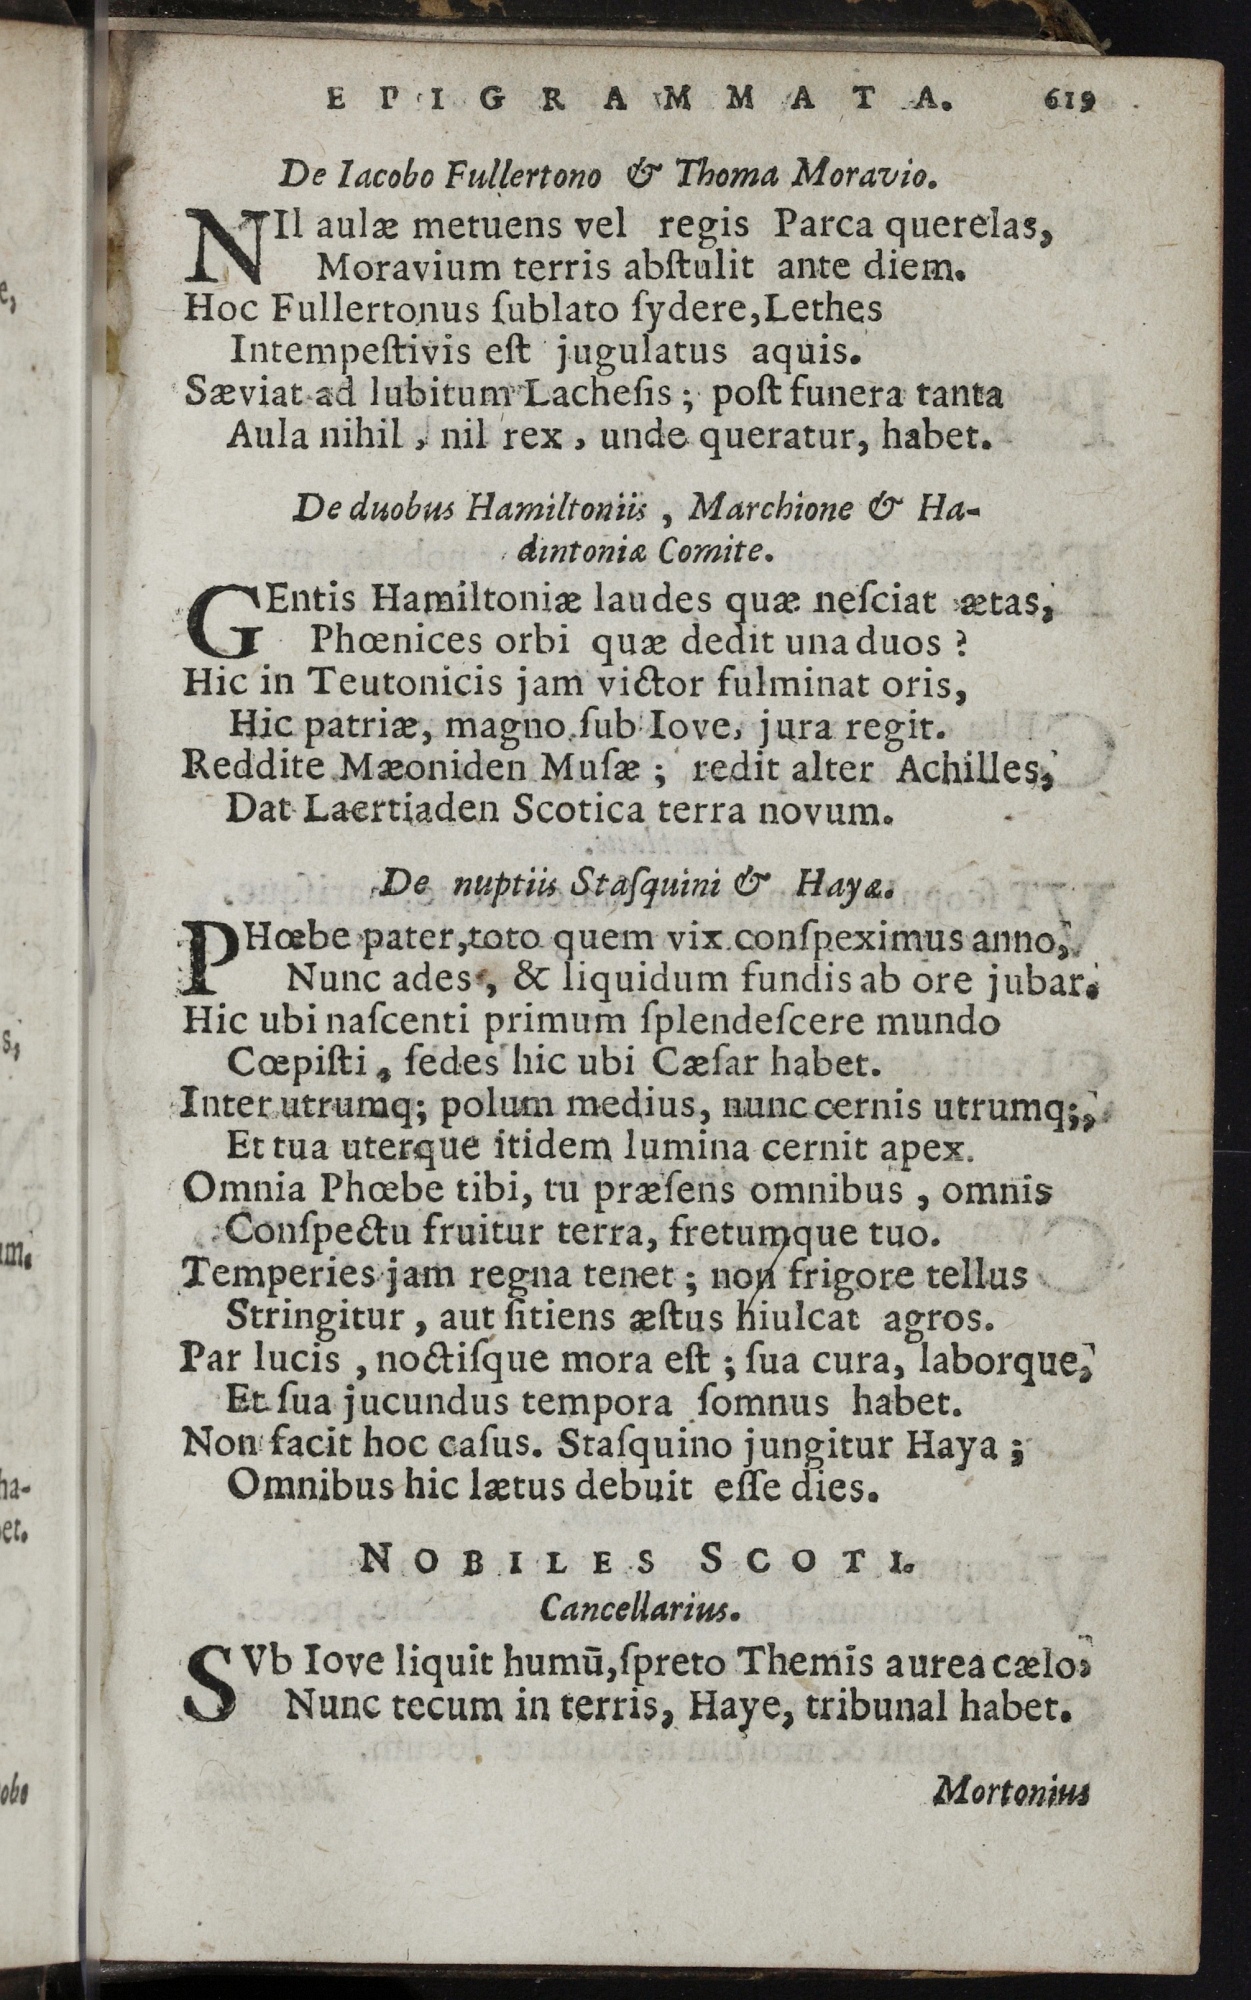 EPIGRAMMATA. 619
De Iacobo Fullertono & Thoma Moravio.
NIl aulæ metuens vel regis Parca querelas,
Moravium terris abſtulit ante diem.
Hoc Fullertonus ſublato ſydere, Lethes
Intempeſtivis eſt jugulatus aquis.
Sæviat ad lubitum Lacheſis; poſt funera tanta
Aula nihil, nil rex, unde queratur, habet.
De duobus Hamiltoniis, Marchione & Ha-
dintoniæ Comite.
GEntis Hamiltoniæ laudes quæ neſciat ætas,
Phœnices orbi quæ dedit una duos?
Hic in Teutonicis jam victor fulminat oris,
Hic patriæ, magno ſub Iove, jura regit.
Reddite Mæoniden Muſæ; redit alter Achilles,
Dat Laertiaden Scotica terra novum.
De nuptiis Staſquini & Hayæ.
PHœbe pater, toto quem vix conſpeximus anno,
Nunc ades, & liquidum fundis ab ore jubar.
Hic ubi naſcenti primum ſplendeſcere mundo
Cœpiſti, ſedes hic ubi Cæſar habet.
Inter utrumq; polum medius, nunc cernis utrumq;,
Et tua uterque itidem lumina cernit apex.
Omnia Phœbe tibi, tu præſens omnibus, omnis
Conſpectu fruitur terra, fretumque tuo.
Temperies jam regna tenet; non frigore tellus
Stringitur, aut ſitiens æſtus hiulcat agros.
Par lucis, noctiſque mora eſt; ſua cura, laborque,
Et ſua jucundus tempora ſomnus habet.
Non facit hoc caſus. Staſquino jungitur Haya;
Omnibus hic lætus debuit eſſe dies.
NOBILES SCOTI.
Cancellarius.
SVb Iove liquit humū, ſpreto Themis aurea cælo,
Nunc tecum in terris, Haye, tribunal habet.
Mortonius